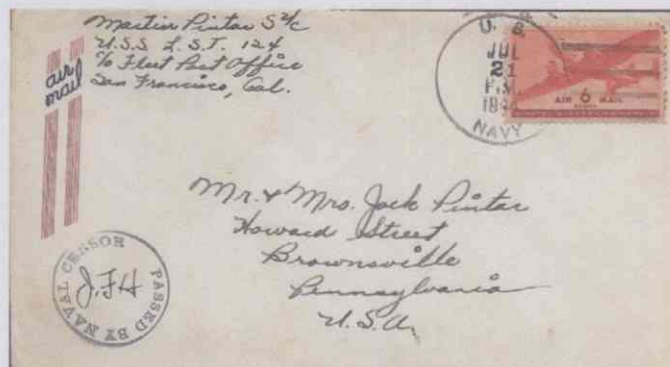 Martin Pintar S 2/c
U.S.S. L.S.T. 124
c/o Fleet Post Office
San Francisco, Cal.
air
mail
U. S.
JUL
21
P.M.
NAVY
AIR 6 MAIL
CENTS
Mr. & Mrs. Jack Pintar
Howard Street
Brownsville
Pennsylvania
U.S.A.
PASSED BY NAVAL CENSOR
J.F.H